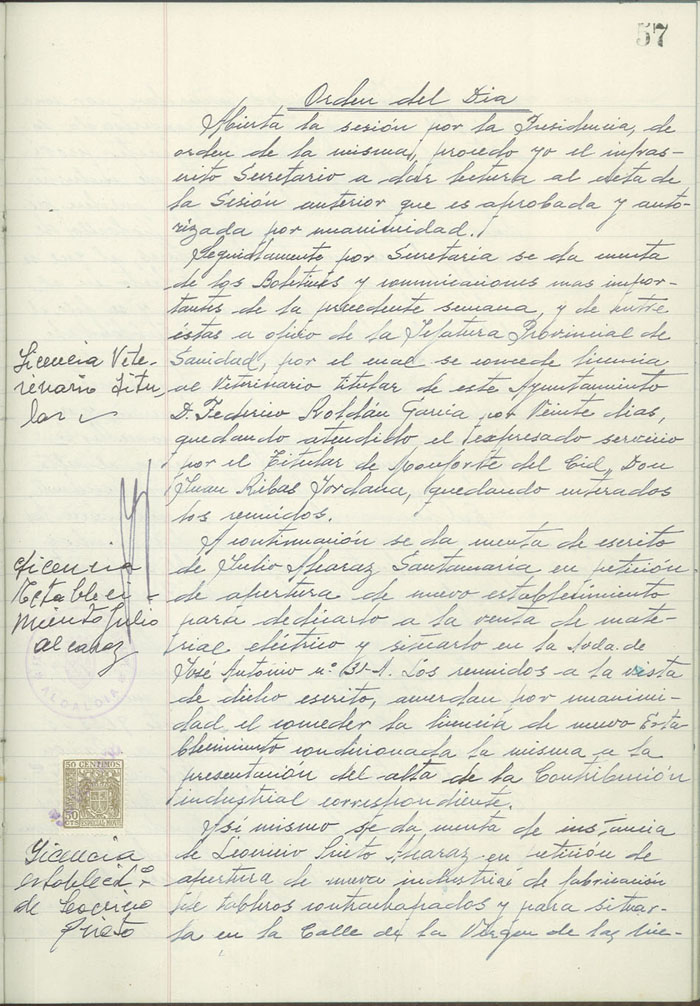 57
Orden del Dia
Abierta la sesión por la Presidencia, de
orden de la misma, procedo yo el infras-
crito Secretario a dar lectura al acta de
la Sesión anterior que es aprobada y auto-
rizada por unanimidad.
Seguidamente por Secretaria se da cuenta
de los Boletines y comunicaciones mas impor-
tantes de la precedente semana, y de entre
éstas a oficio de la Jefatura Provincial de
Sanidad, por el cual se concede licencia
al Veterinario titular de este Ayuntamiento
D. Federico Roldán Garcia por Veinte dias,
quedando atendido el expresado servicio
por el Titular de Monforte del Cid, Don
Juan Ribas Jordana, quedando enterados
los reunidos.
A continuación se da cuenta de escrito
de Julio Alcaraz Santamaría en petición
de apertura de nuevo establecimiento
para dedicarlo a la venta de mate-
rial eléctrico y situarlo en la Avda. de
José Antonio nº 131-A. Los reunidos a la vista
de dicho escrito, acuerdan por unanimi-
dad el conceder la licencia de nuevo Esta-
blecimiento condicionada la misma a la
presentación del alta de la Contribución
industrial correspondiente.
Así mismo se da cuenta de instancia
de Leoncio Prieto Alcaraz en petición de
apertura de nueva industria de fabricación
de tableros contrachapados y para situar-
la en la Calle de la Virgen de las Nie-
Licencia Vete-
rinario Titu-
lar
Licencia
Estableci-
miento Julio
Alcaraz
ALCALDIA
50 CENTIMOS
50
CTS
ESPECIAL MOVIL
Licencia
establecid.º
de Leoncio
Prieto